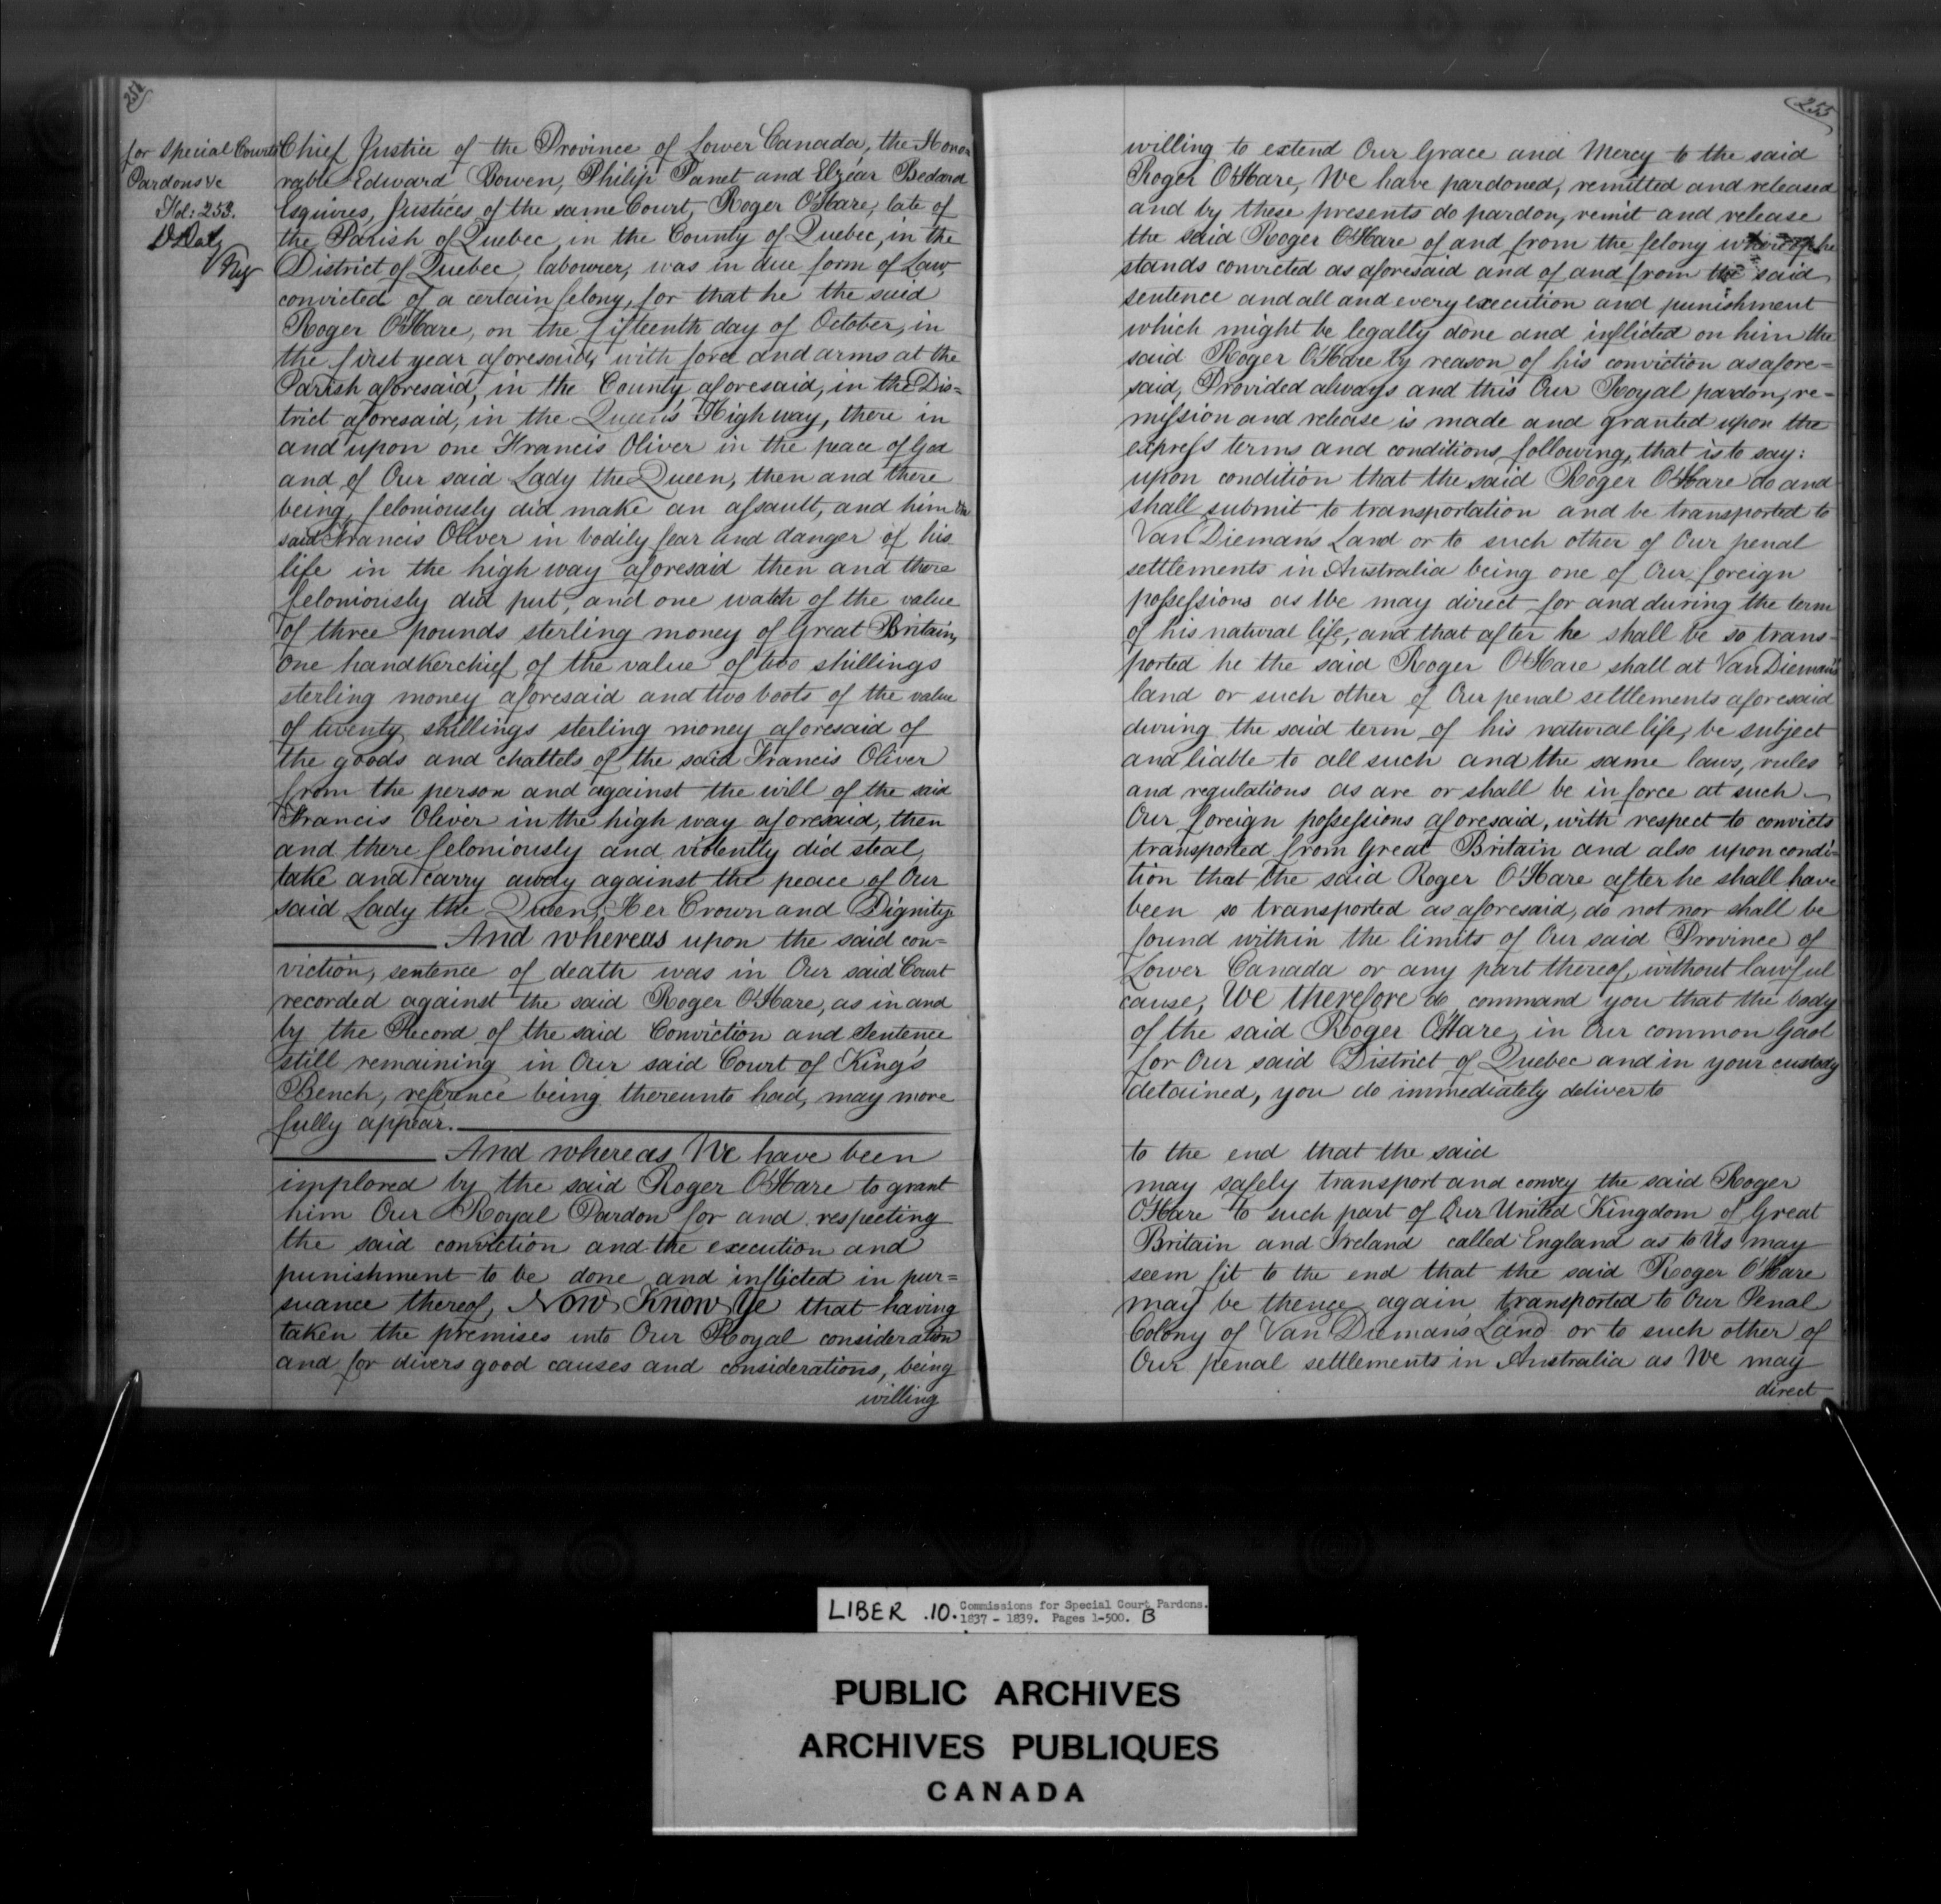 254
for Special Courts
Pardons &c
Fol: 253.
D Daly
Reg
Chief Justice of the Province of Lower Canada, the Hono
rable Edward Bowen, Philip Panet and Elzéar Bedard
Esquires, Justices of the same Court, Roger O'Hare, late of
the Parish of Quebec, in the County of Quebec, in the
District of Quebec, labourer, was in due form of Law
convicted of a certain felony, for that he the said
Roger O'Hare, on the fifteenth day of October, in
the first year aforesaid, with force and arms at the
Parish aforesaid, in the County aforesaid, in the Dis=
trict aforesaid, in the Queen's Highway, there in
and upon one Francis Oliver in the peace of God
and of Our said Lady the Queen, then and there
being, feloniously did make an assault, and him the
said Francis Oliver in bodily fear and danger of his
life in the high way aforesaid then and there
feloniously did put, and one watch of the value
of three pounds sterling money of Great Britain,
one handkerchief of the value of two shillings
sterling money aforesaid and two boots of the value
of twenty shillings sterling money aforesaid of
the goods and chattels of the said Francis Oliver
from the person and against the will of the said
Francis Oliver in the high way aforesaid, then
and there feloniously and violently did steal,
take and carry away against the peace of Our
said Lady the Queen, Her Crown and Dignity.
And whereas upon the said con=
viction, sentence of death was in Our said Court
recorded against the said Roger O'Hare, as in and
by the Record of the said Conviction and Sentence
still remaining in Our said Court of King's
Bench, reference being thereunto had, may more
fully appear.
And whereas We have been
implored by the said Roger O'Hare to grant
him Our Royal Pardon for and respecting
the said conviction and the execution and
punishment to be done and inflicted in pur=
suance thereof, Now Know Ye that having
taken the premises into Our Royal consideration
and for divers good causes and considerations, being
willing
255
willing to extend Our Grace and Mercy to the said
Roger O'Hare, We have pardoned, remitted and released
and by these presents do pardon, remit and release
the said Roger O'Hare of and from the felony whereof he
stands convicted as aforesaid and of and from the said
sentence and all and every execution and punishment
which might be legally done and inflicted on him the
said Roger O'Hare by reason of his conviction as afore=
said, Provided always and this Our Royal pardon, re=
mission and release is made and granted upon the
express terms and conditions following, that is to say:
upon condition that the said Roger O'Hare do and
shall submit to transportation and be transported to
Van Diemans Land or to such other of Our penal
settlements in Australia being one of Our foreign
possessions as We may direct for and during the term
of his natural life, and that after he shall be so trans=
ported he the said Roger O'Hare shall at Van Dieman's
land or such other of Our penal settlements aforesaid
during the said term of his natural life, be subject
and liable to all such and the same laws, rules
and regulations as are or shall be in force at such
Our foreign possessions aforesaid, with respect to convicts
transported from Great Britain and also upon condi=
tion that the said Roger O'Hare after he shall have
been so transported as aforesaid, do not nor shall be
found within the limits of Our said Province of
Lower Canada or any part thereof, without lawful
cause, We therefore do command you that the body
of the said Roger O'Hare, in Our common Gaol
for Our said District of Quebec and in your custody
detained, you do immediately deliver to
to the end that the said
may safely transport and convey the said Roger
O'Hare to such part of Our United Kingdom of Great
Britain and Ireland called England as to Us may
seem fit to the end that the said Roger O'Hare
may be thence again transported to Our Penal
Colony of Van Dieman's Land or to such other of
Our penal settlements in Australia as We may
direct
LIBER .10. Commissions for Special Court Pardons.
1837 - 1839. Pages 1-500. B
PUBLIC ARCHIVES
ARCHIVES PUBLIQUES
CANADA